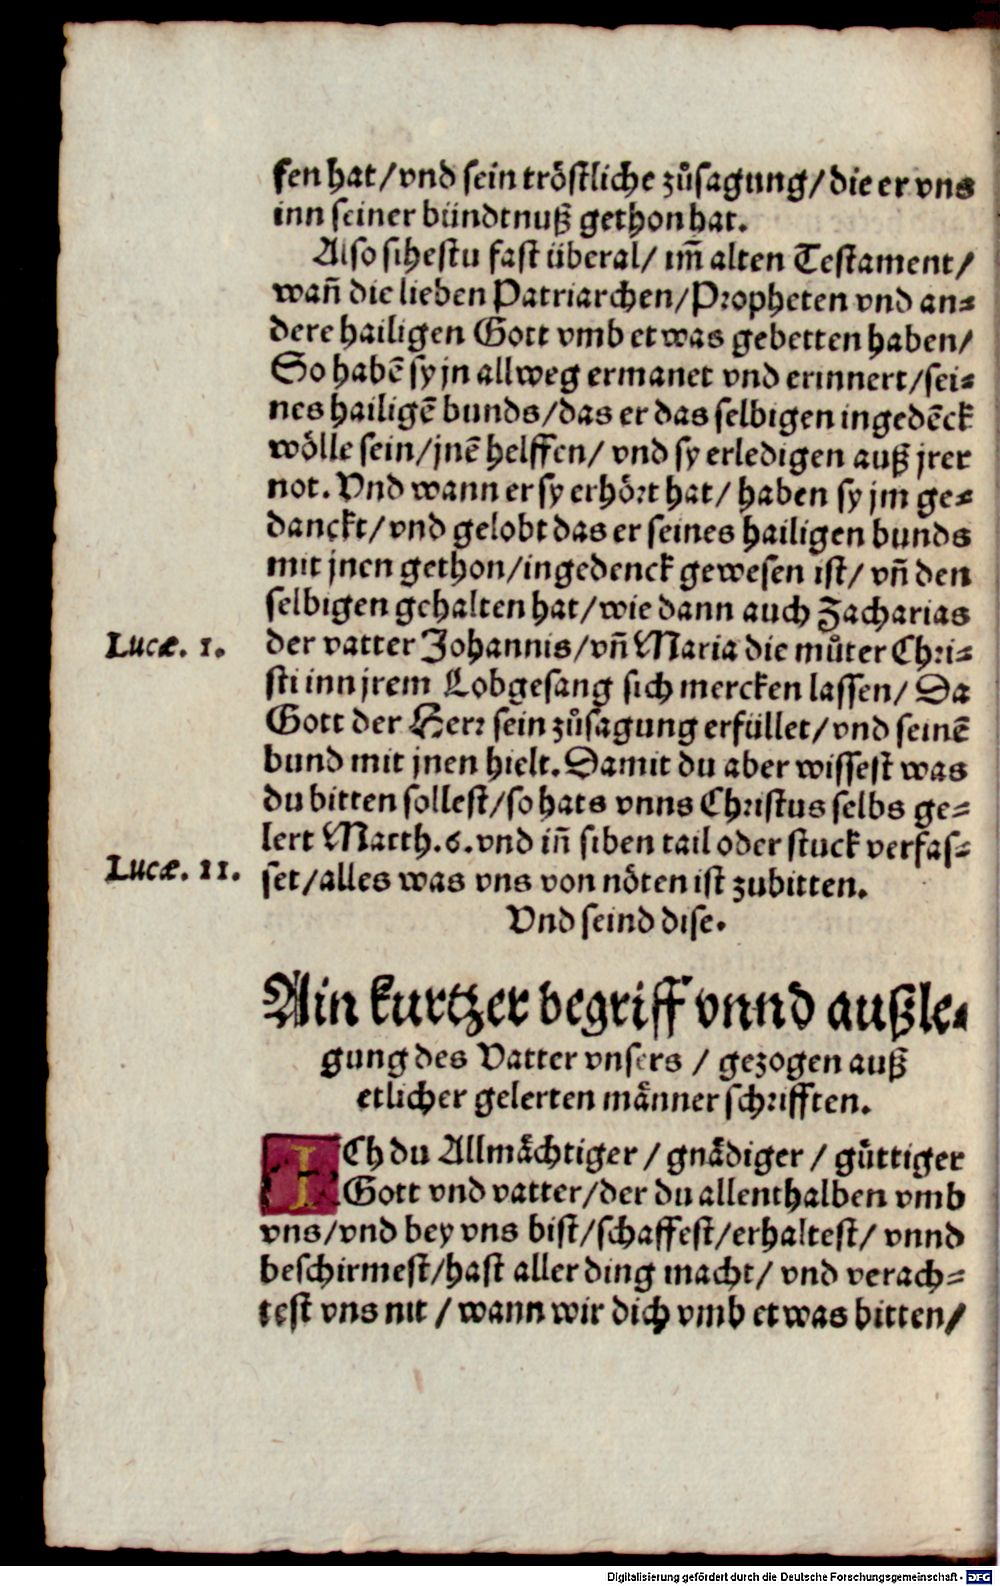 fen hat/vnd sein tröstliche zůsagung/die er vns
inn seiner bündtnuß gethon hat.
Also sihestu fast überal/ im̃ alten Testament/
wañ die lieben Patriarchen/Propheten vnd an-
dere hailigen Gott vmb etwas gebetten haben/
So habẽ sy jn allweg ermanet vnd erinnert/sei-
nes hailigẽ bunds/das er das selbigen ingedẽck
wölle sein/jnẽ helffen/ vnd sy erledigen auß jrer
not. Vnd wann er sy erhört hat/ haben sy jm ge-
danckt/vnd gelobt das er seines hailigen bunds
mit jnen gethon/ingedenck gewesen ist/ vñ den
selbigen gehalten hat/wie dann auch Zacharias
Lucæ. 1.
der vatter Johannis/vñ Maria die můter Chri-
sti inn jrem Lobgesang sich mercken lassen/ Da
Gott der Herr sein zůsagung erfüllet/vnd seinẽ
bund mit jnen hielt. Damit du aber wissest was
du bitten sollest/so hats vnns Christus selbs ge-
lert Matth. 6. vnd iñ siben tail oder stuck verfas-
Lucæ. 11.
set/alles was vns von nöten ist zubitten.
Vnd seind dise.
Ain kurtzer begriff vnnd außle-
gung des Vatter vnsers / gezogen auß
etlicher gelerten männer schrifften.
ICh du Allmächtiger / gnädiger / güttiger
Gott vnd vatter/der du allenthalben vmb
vns/vnd bey vns bist/schaffest/erhaltest/ vnnd
beschirmest/hast aller ding macht/ vnd verach-
test vns nit / wann wir dich vmb etwas bitten/
Digitalisierung gefördert durch die Deutsche Forschungsgemeinschaft - DFG